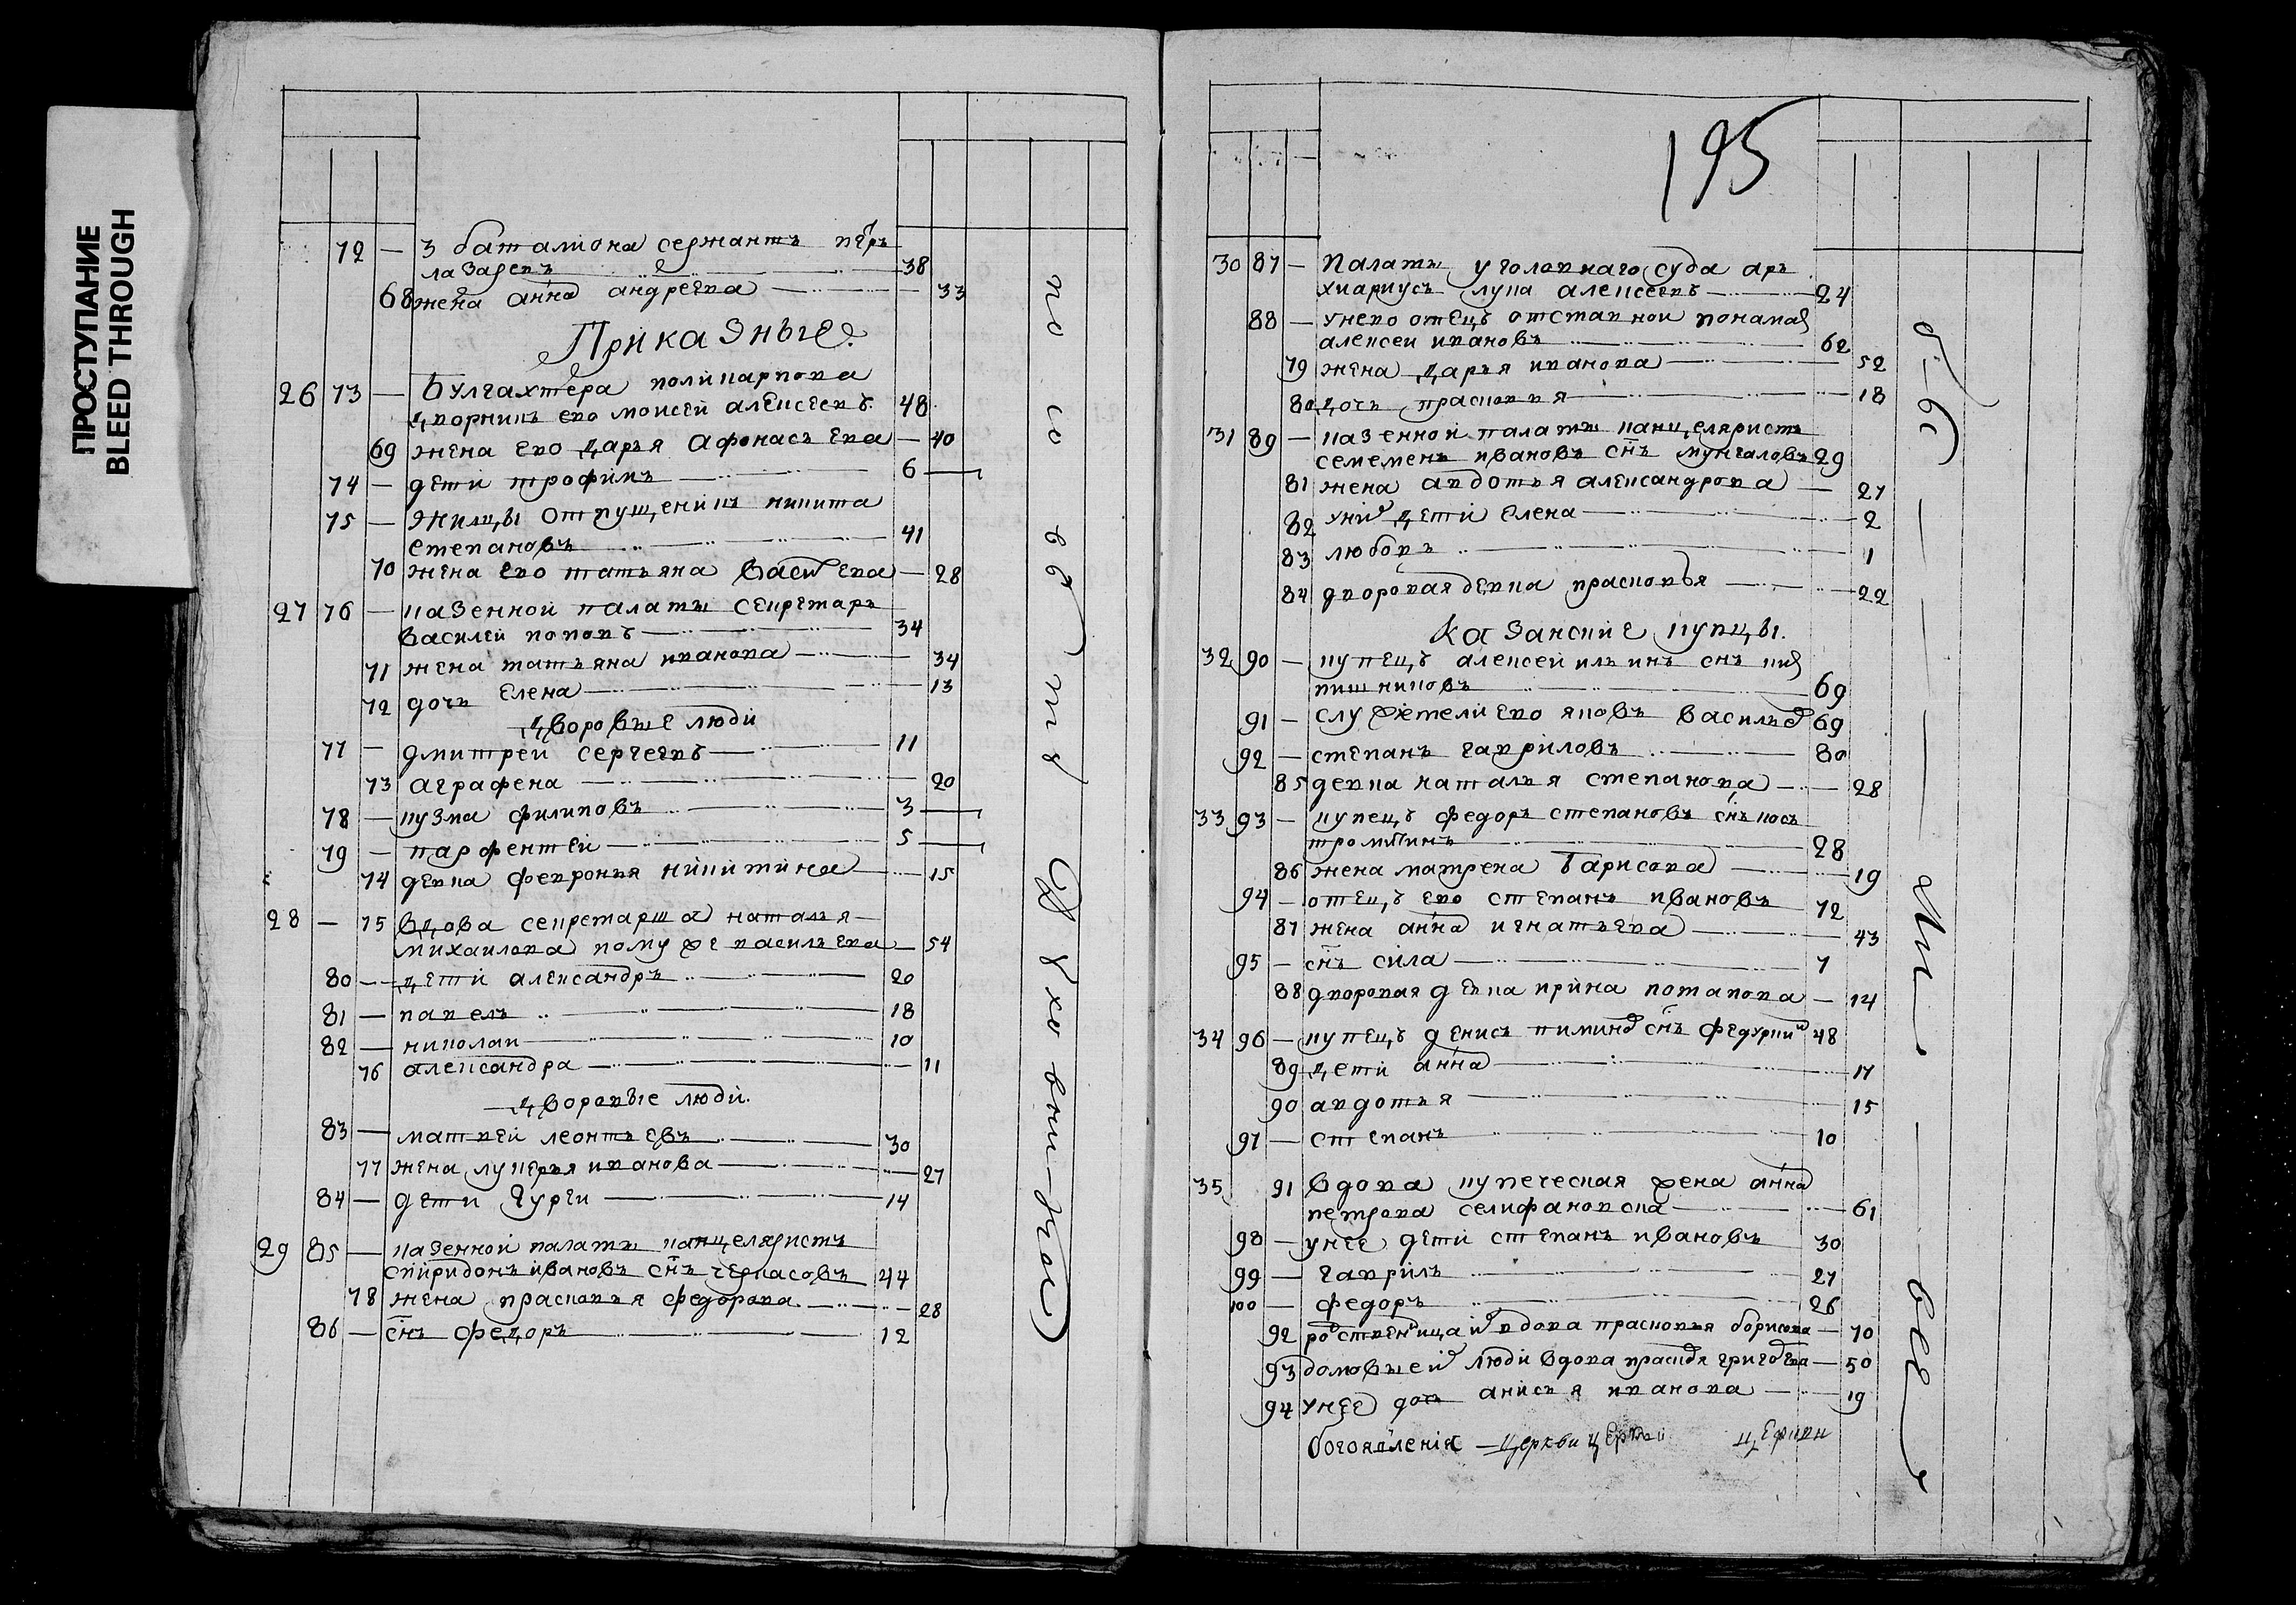 ПРОСТУПАНИЕ
BLEED THROUGH
72 — 3 баталиона сержантъ петръ
лазаревъ 38
68 жена анна андреева 33
Приказные.
26 73 — Булгахтера поликарпова
дворникъ ево моисей алексеевъ 48
69 жена ево дарья афонасьева — 40
74 — дети трофимъ 6
75 — жильцы отпущеникъ никита
степановъ 41
70 жена ево татьяна васильева — 28
27 76 — казенной палаты секретарь
василей поповъ 34
71 жена татьяна иванова 34
72 дочь елена 13
дворовые люди
77 — дмитрей сергеевъ 11
73 аграфена 20
78 — кузма филиповъ 3
79 — парфентей 5
74 девка феврония никитина 15
28 — 75 вдова секретарша наталья
михаилова по муже васильева — 54
80 — дети александръ 20
81 — павелъ 18
82 — николаи 10
76 александра 11
дворовые люди.
83 — матвей леонтьевъ 30
77 жена лукерья иванова 27
84 — дети гурей 14
29 85 — казенной палаты канцеляристъ
спиридонъ ивановъ снъ черкасовъ 44
78 жена прасковья федорова 28
86 — снъ федоръ 12
по со въ ту Духовни-ков
195
30 87 — Палаты уголовнаго суда ар
хивариусъ лука алексеевъ 24
88 — у нево отецъ отставной понамар
алексеи ивановъ 62
79 жена дарья иванова 52
80 дочь прасковья 18
31 89 — казенной палаты канцеляристъ
семенъ ивановъ снъ мунгаловъ 29
81 жена авдотья александрова — 27
82 у них дети елена 2
83 любовъ 1
84 дворовая девка прасковья 22
Казанские купцы.
32 90 — купецъ алексей ильинъ снъ
69
91 — служители ево яковъ васильев 69
92 — степанъ гавриловъ 80
85 девка наталья степанова 28
33 93 — купецъ федоръ степановъ снъ кос
тромитинъ 28
86 жена матрена барисова 19
94 — отецъ ево степанъ ивановъ 72
87 жена анна игнатьева 43
95 — снъ сила 7
88 дворовая девка ирина потапова — 14
34 96 — купецъ денисъ пиминов снъ 48
89 дети анна 17
90 авдотья 15
97 — степанъ 10
35 91 вдова купеческая жена анна
петрова селифановска 61
98 — у нее дети степанъ ивановъ 30
99 — гаврилъ 27
100 — федоръ 26
92 родственница их вдова прасковья борисова — 70
93 домовые их люди вдова прасковя григорева — 50
94 у нее дочь анисья иванова 19
богоявления церкви церкви